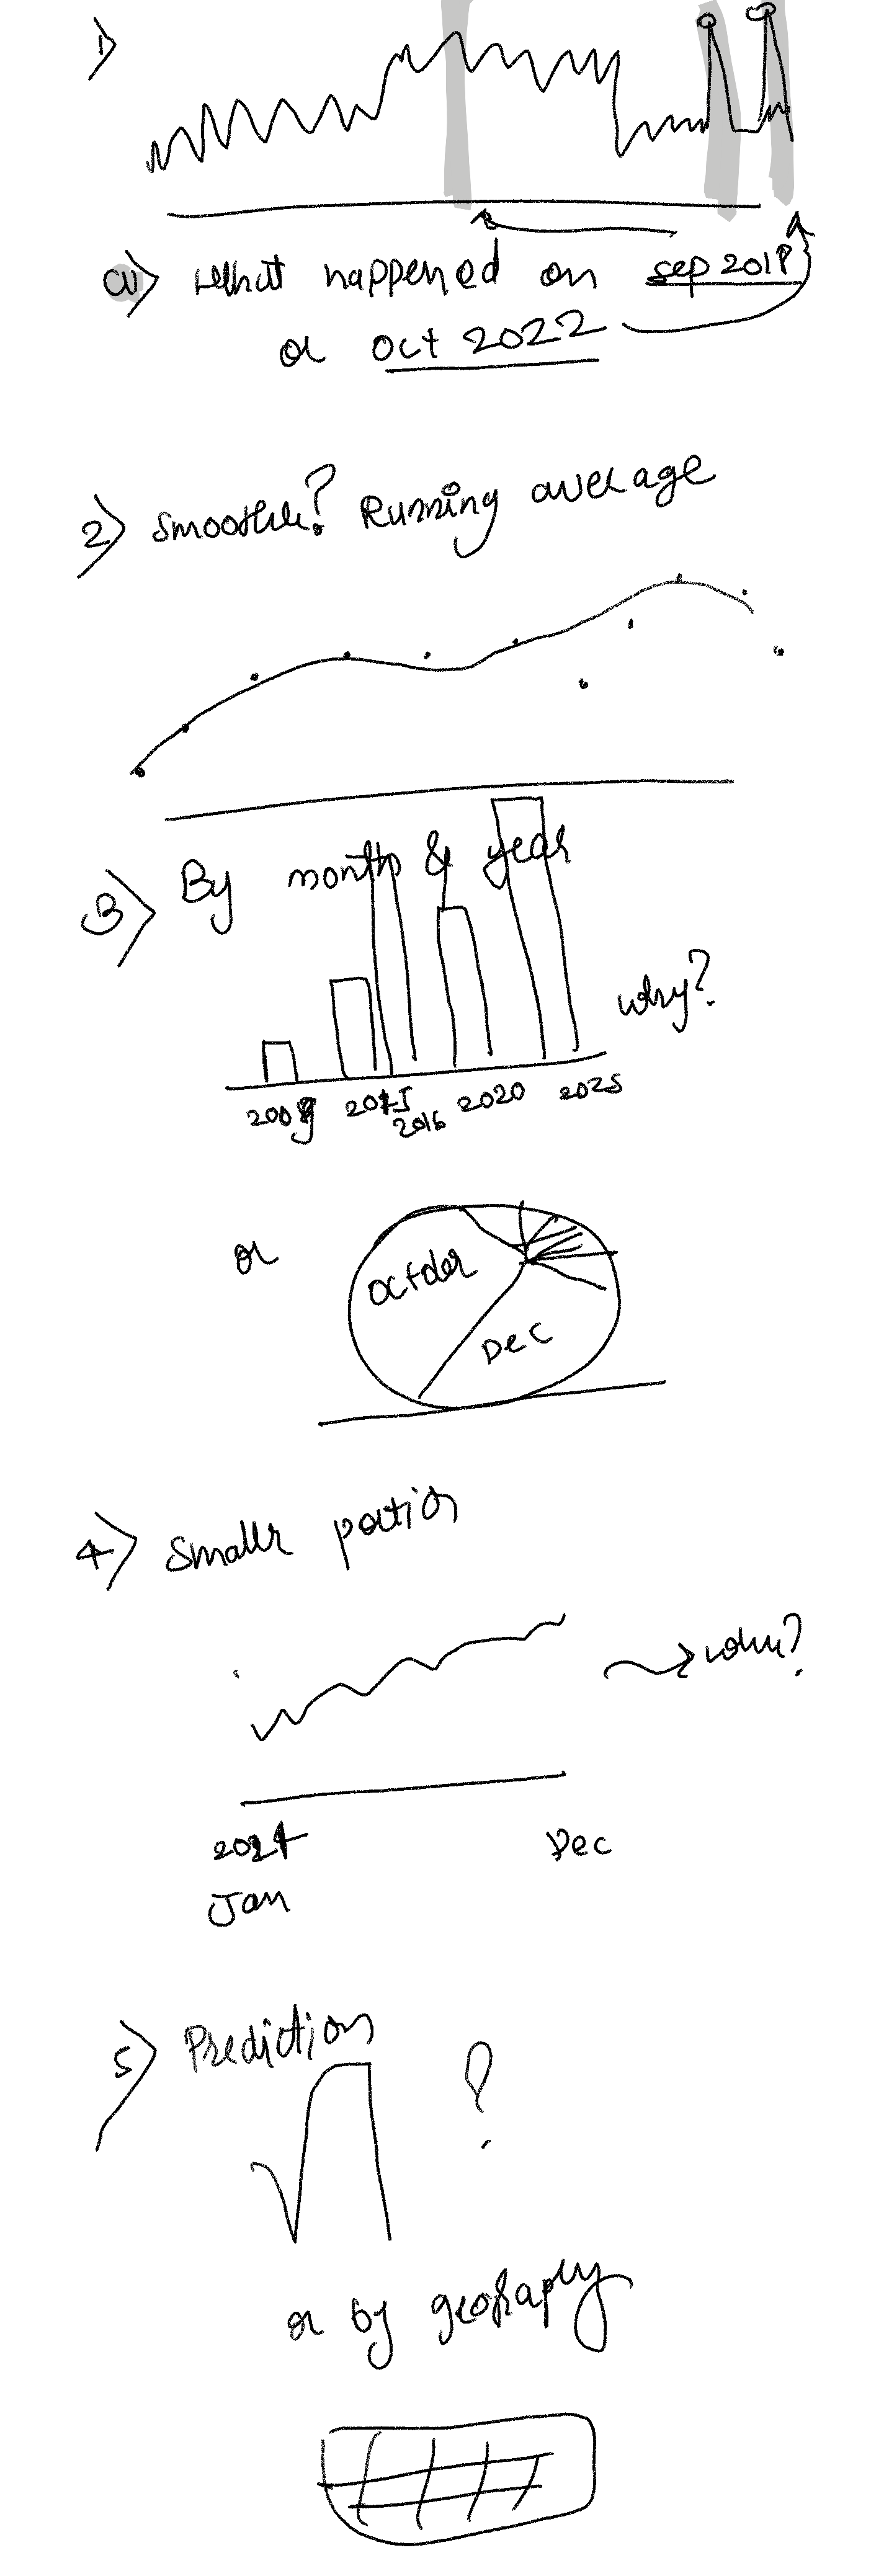 1)
a) What happened on sep 2018
or oct 2022
2) smoother? Running average
3) By month & year
why?
2009 2015 2016 2020 2025
or
october
Dec
4) smaller portion
when?
2024 Dec
Jan
5) Prediction
?
or by geography